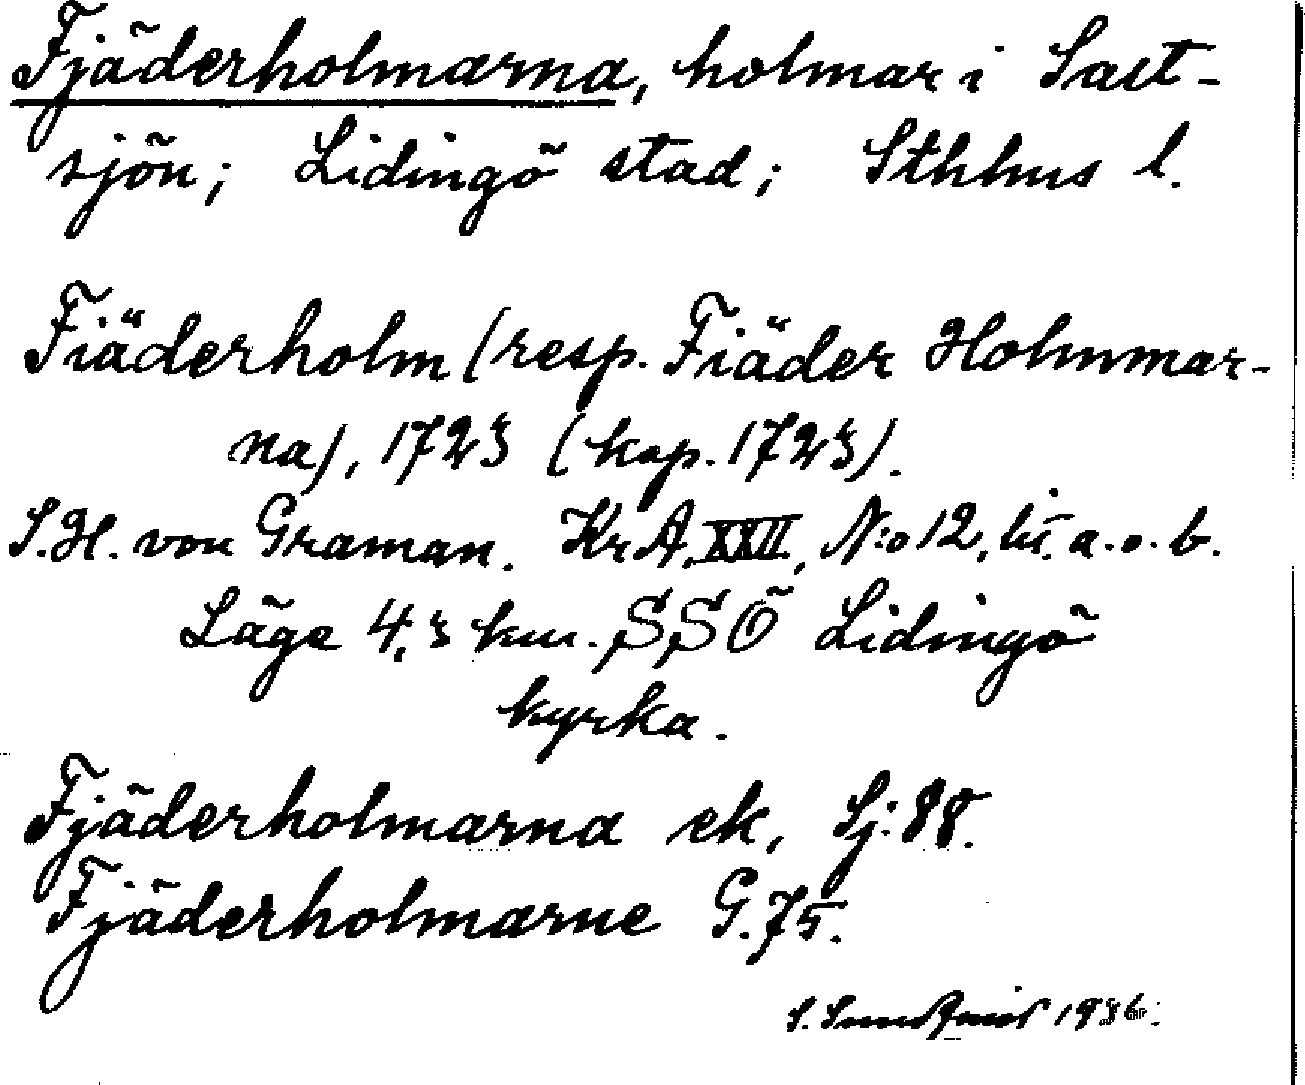 Fjäderholmarna, holmar i Salt-
sjön; Lidingö stad; Sthlms l.
Fiäderholm (resp. Fiäder Holmmar-
na), 1723 (kop. 1723).
S.H. von Graman. KrA, XXII, N:o 12, lit. a. o. b.
Läge 4,3 km. SSÖ Lidingö
kyrka.
Fjäderholmarna ek, Sj: 88.
Fjäderholmarne G. 75.
S. Sundqvist 1936.